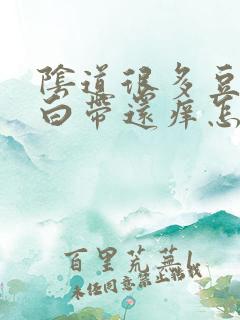 陰道很多豆
白帶還痒怎
百里荒蕪
未经同意禁止转载